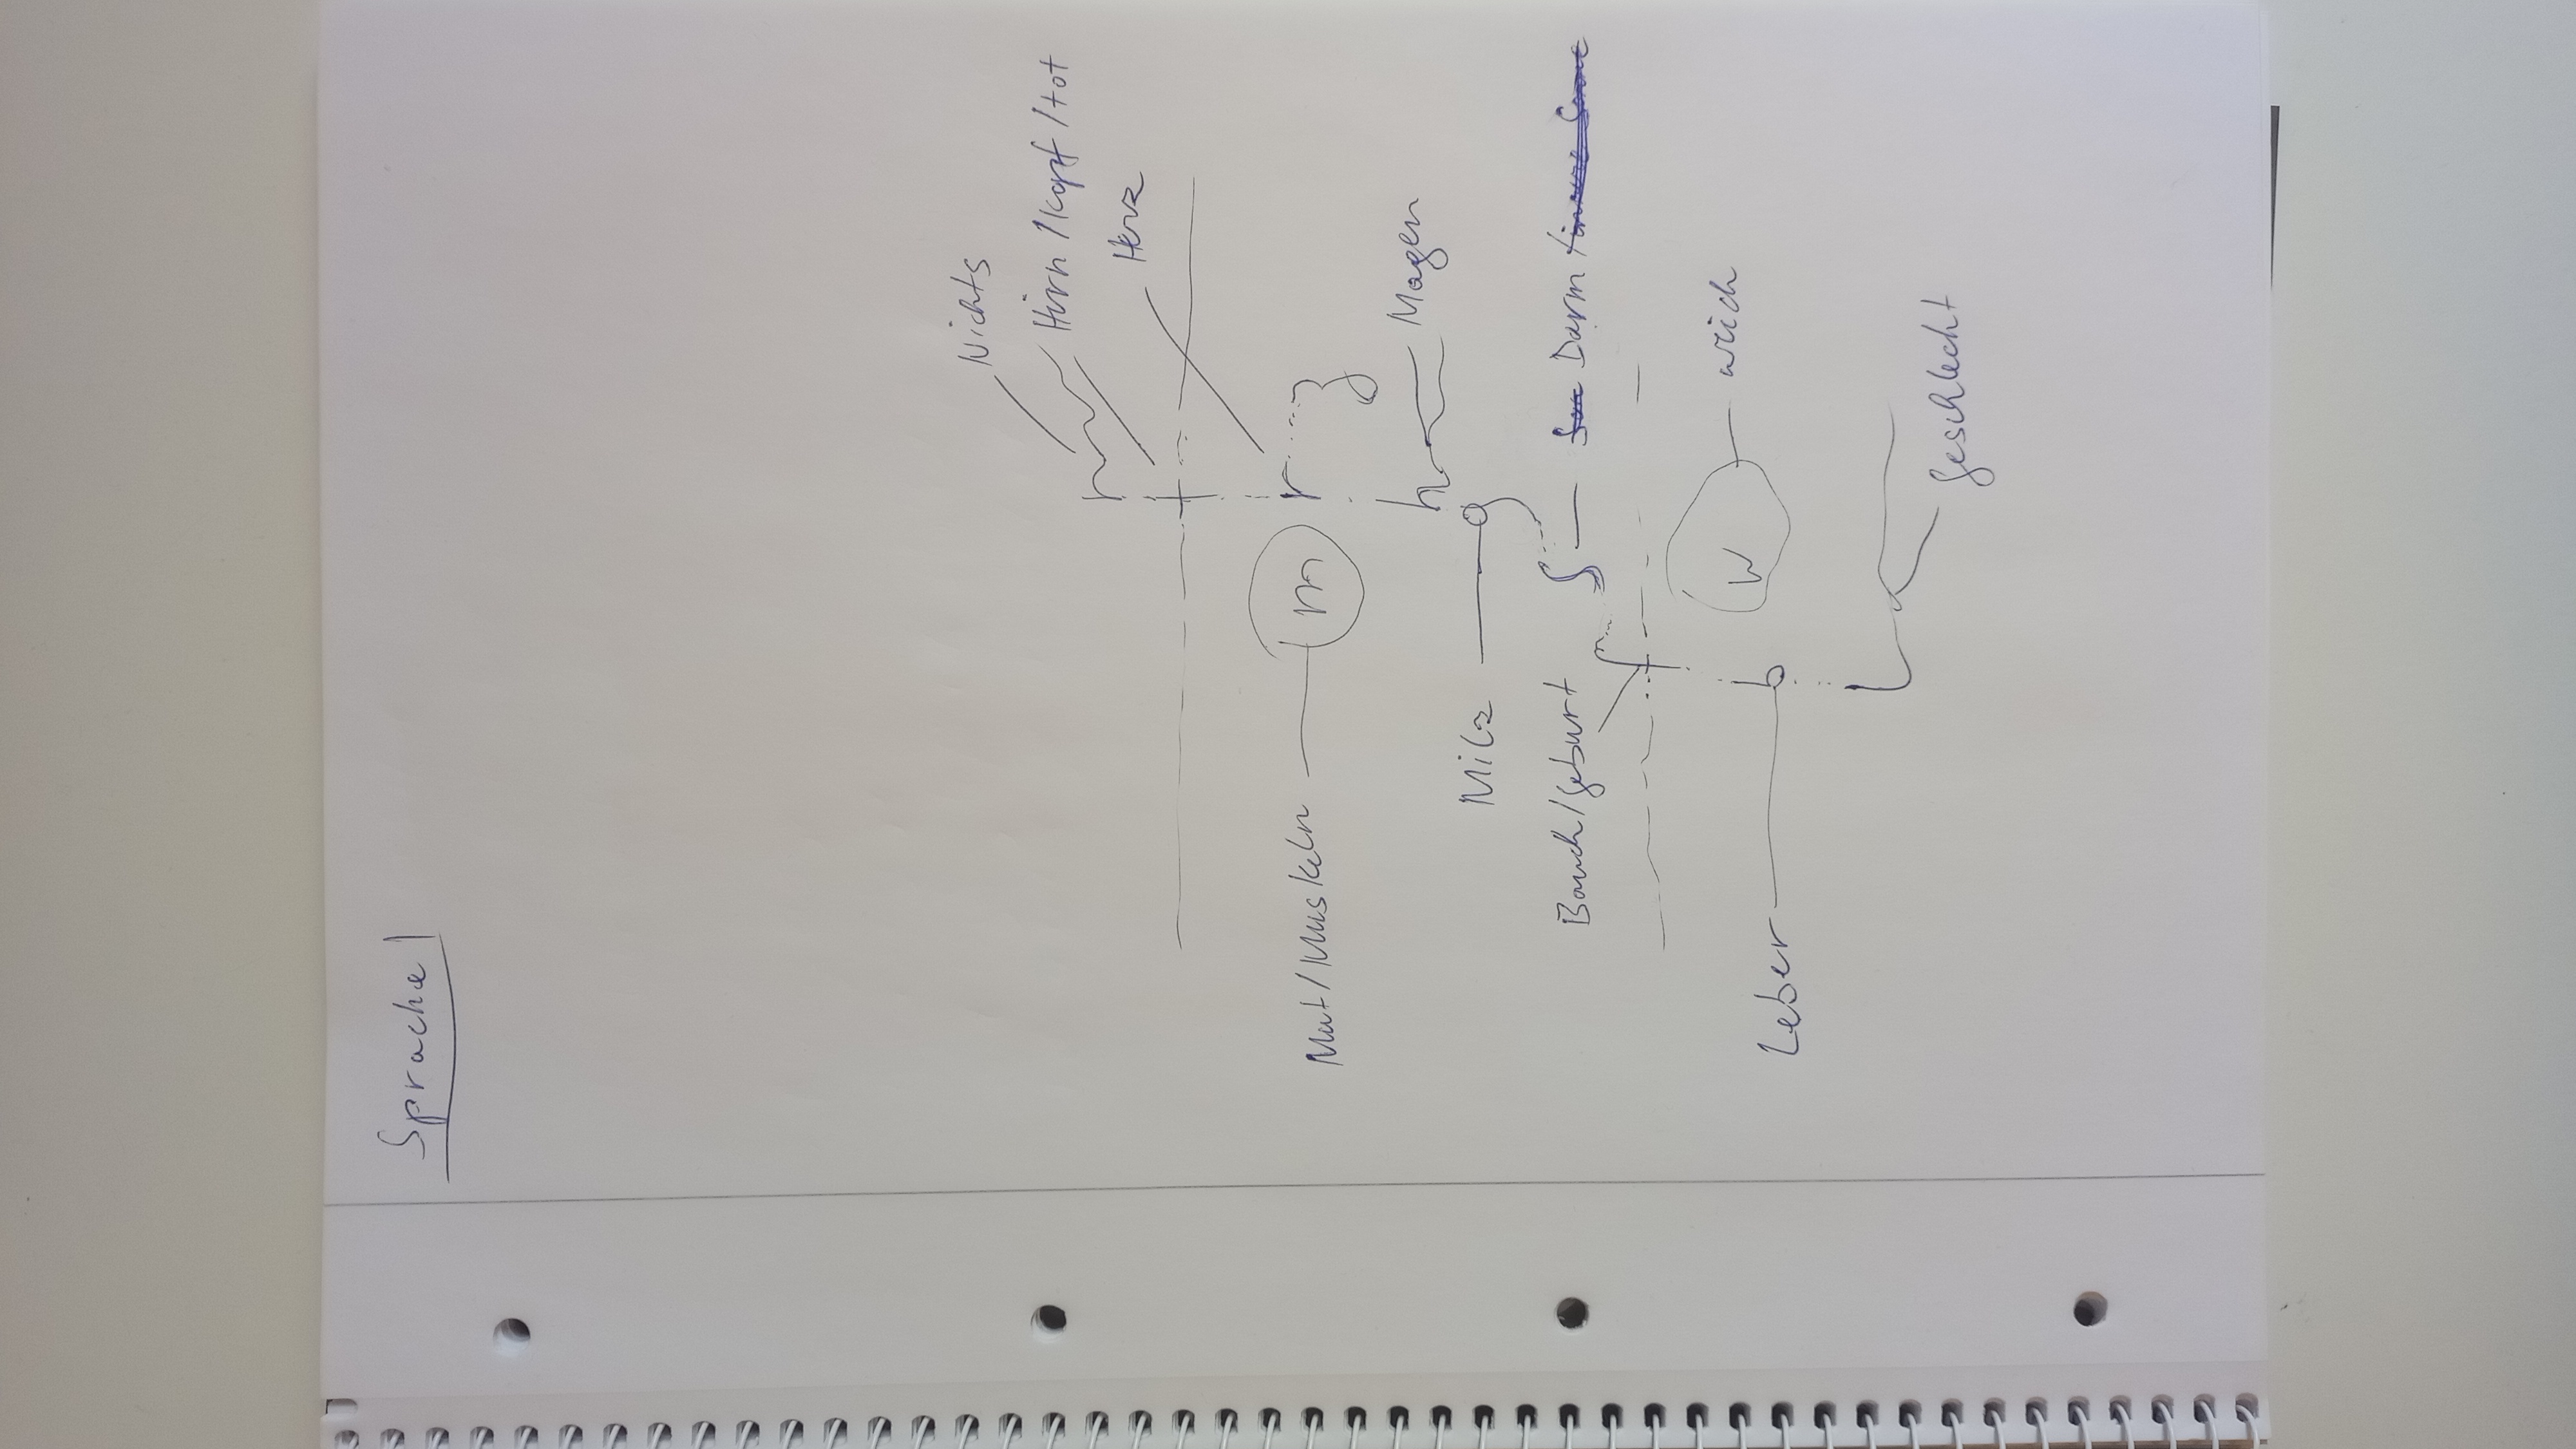 Sprache 1
Nichts
n
Hirn / Kopf / tot
t
Herz
r z
Mut / Muskeln m
h Magen
Milz g
Bauch / Geburt s Darm
f
w weich
Leber b
l
Geschlecht